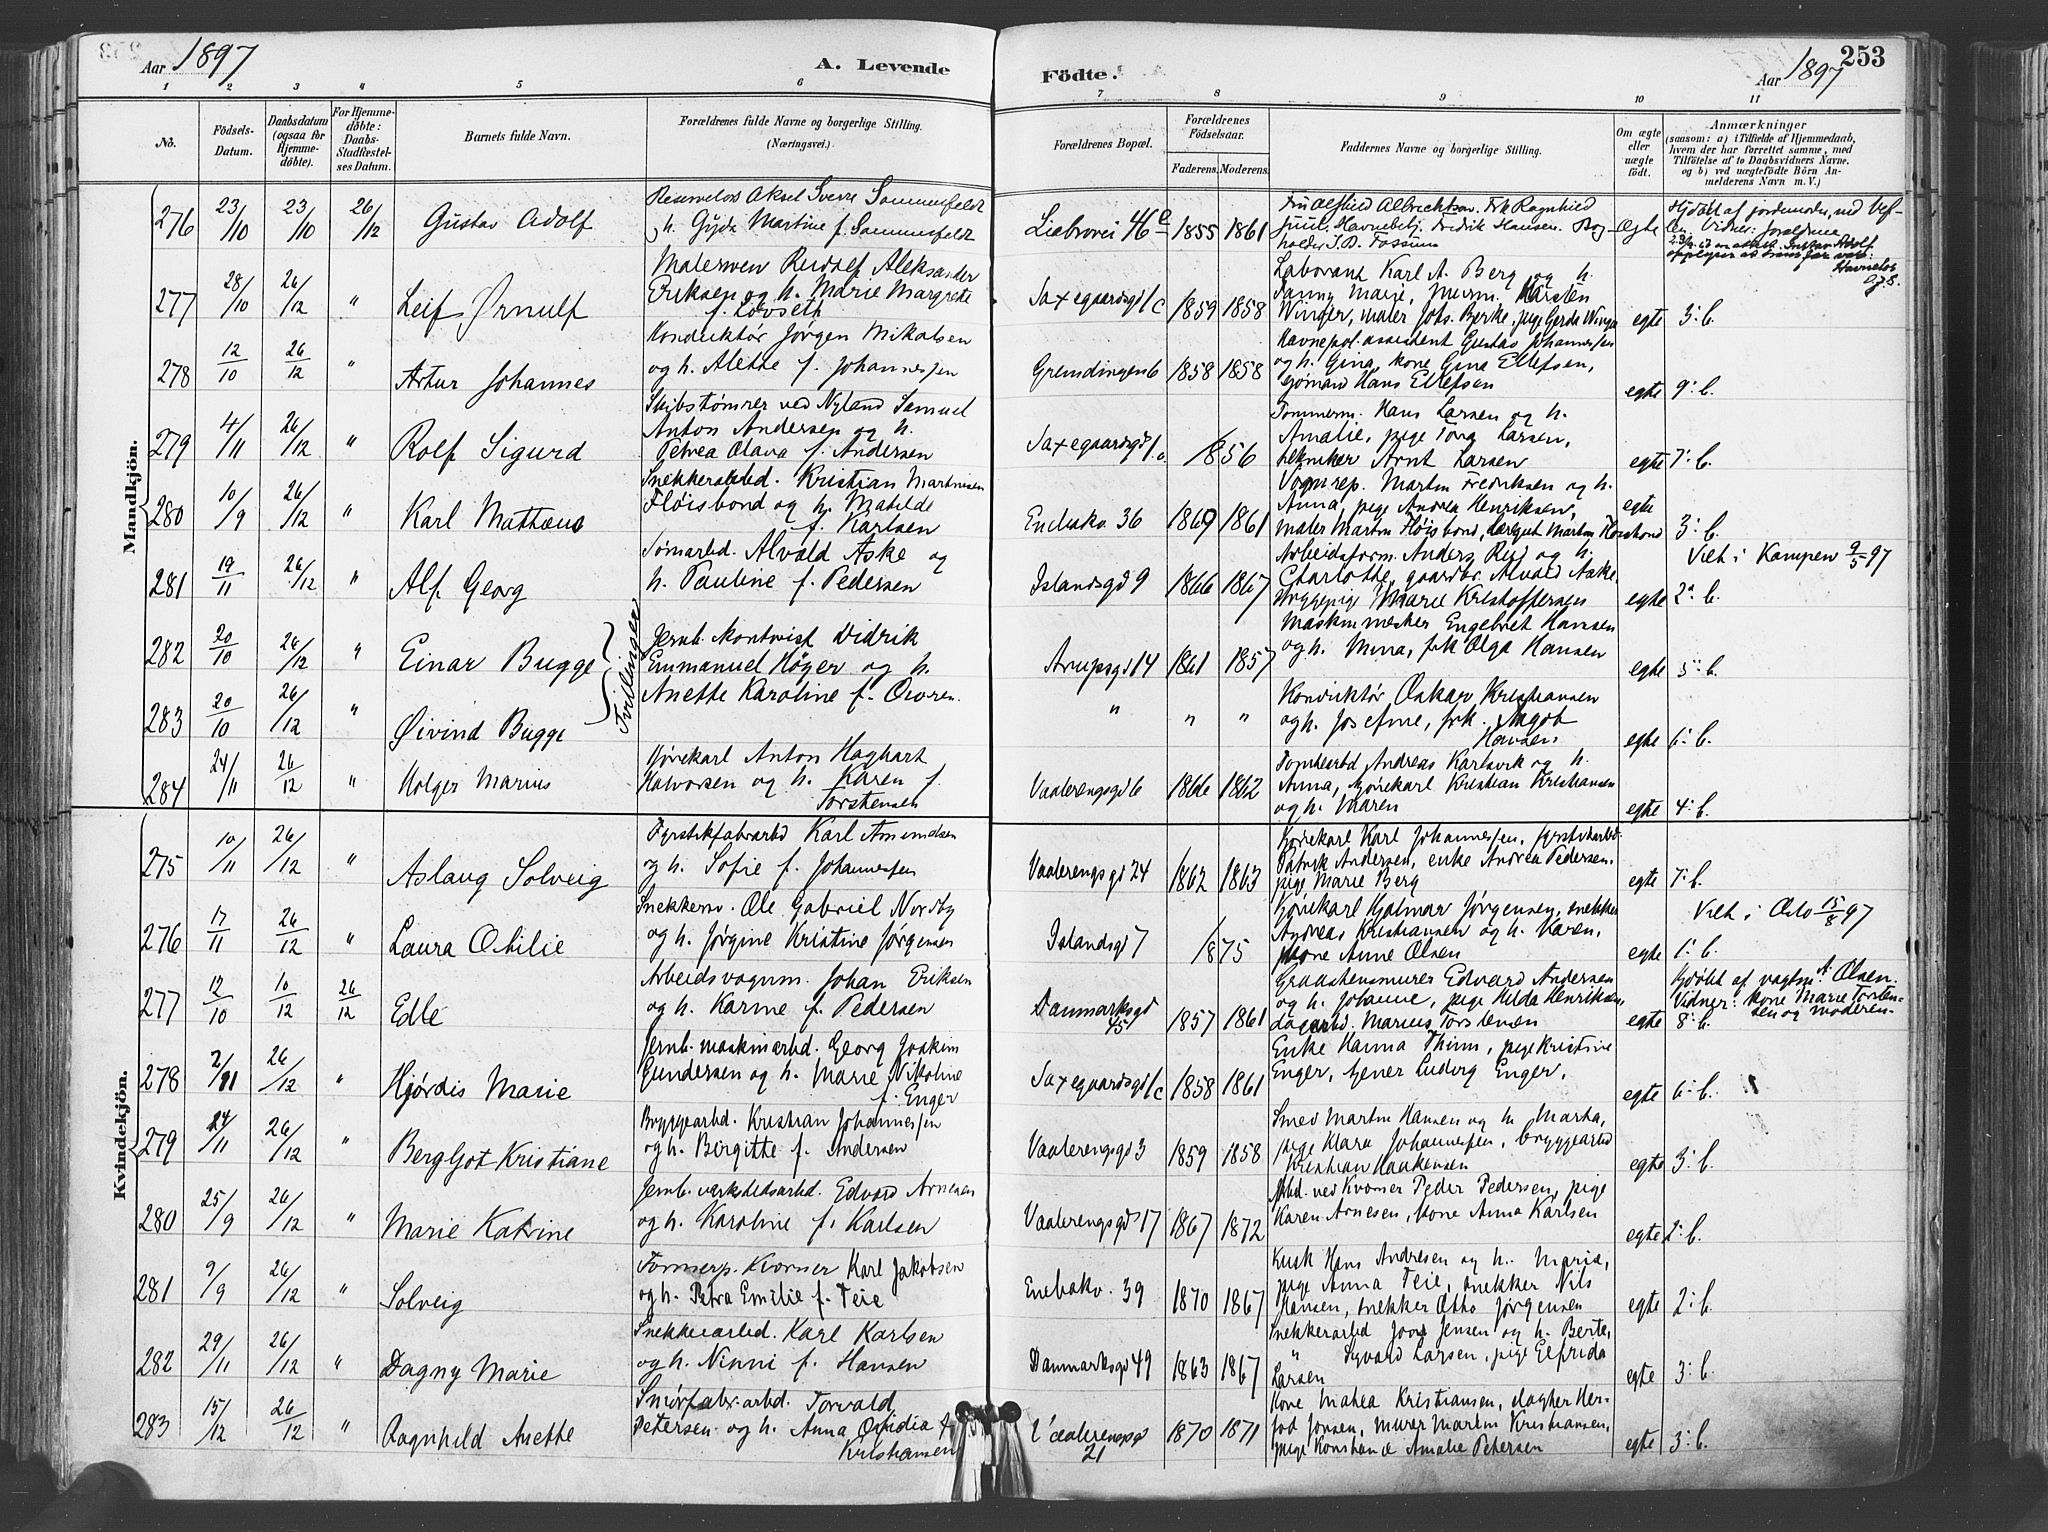 Aar 1897
A. Levende
Födte.
Aar 1897
253
1 2 3 4 5 6 7 8 9 10 11
No.
Födsels-
Datum.
Daabsdatum
(ogsaa for
Hjemme-
döbte).
For Hjemme-
döbte:
Daabs-
Stadfæstel-
ses Datum.
Barnets fulde Navn.
Forældrenes fulde Navne og borgerlige Stilling.
(Næringsvei.)
Forældrenes Bopæl.
Forældrenes
Födselsaar.
Faderens. Moderens.
Faddernes Navne og borgerlige Stilling.
Om ægte
eller
uægte
födt.
Anmærkninger
(saasom: a) i Tilfælde af Hjemmedaab,
hvem der har forrettet samme, med
Tilföielse af to Daabsvidners Navne.
og b) ved uægtefödte Börn An-
melderens Navn m. V.)
Mandkjön.
276 23/10 23/10 26/12 Gustav Adolf
Aksel Sverre Sommerfeldt
h. Gyda Martine f. Sommerfeldt
1855 1861
Havnebetj. Fredrik Hansen. Bog-
holder Fossum
Ægte
277 28/10 26/12 " Leif Ørnulf
Malersven Rudolf Aleksander
Eriksen og h. Marie Margrete
f. Løvseth
Saxegaardsgd 1c 1859 1858
Laborant Karl A. Berg og h.
Fanny Marie, murm. Karsten
Winger, maler Johs. Berke, pige Gerda Winger
egte 3: b.
278 12/10 26/12 " Artur Johannes
Konduktør Jørgen Mikalsen
og h. Alette f. Johannessen
Grønldingen 6 1858 1858
Havnepol.assistent Gustav Johannessen
og h. Gina, kone Gina Ellefsen,
sjømand Hans Ellefsen
egte 9: b.
279 4/11 26/12 " Rolf Sigurd
Skibstømrer ved Nyland Samuel
Anton Andersen og h.
Petrea Olava f. Andersen
Saxegaardsgd 1 a. 1856
Tømmerm. Hans Larsen og h.
Amalie, pige Tora Larsen,
tekniker Arnt Larsen
egte 7: b.
280 10/9 26/12 " Karl Mathæus
Snekkerarbd. Kristian Martinsen
Fløisbond og h. Matilde
f. Karlsen
Enebakv 36 1869 1861
Vognrep. Martin Fredriksen og h.
Anna, pige Andrea Henriksen,
maler Martin Fløisbond,
egte 3: b.
281 19/11 26/12 " Alf Georg
Sømarbd. Alvald Aske og
h. Pauline f. Pedersen
Islandsgd 9 1866 1867
Arbeidsform. Anders Rud og h.
Charlotte, gaardbr. Alvald Aske,
Bryggepige Marie Kristoffersen
egte 2: b.
Viet i Kampen 9/5 97
282 20/10 26/12 " Einar Bugge
Tvillinger
Jernb. kontorist Didrik
Emmanuel Höyer og h.
Anette Karoline f. Owren.
Arupsgd 14 1861 1857
Maskinmester Engebret Hansen
og h. Mina, frk Olga Hansen
egte 5: b.
283 20/10 26/12 " Øivind Bugge
" " "
Konduktør Oskar Kristiansen
og h. Josefine, frk. Ragnh
Hansen
egte 6: b.
284 24/11 26/12 " Holger Marius
Kjørekarl Anton Hagbart
Halvorsen og h. Karen f.
Torstensen
Vaalerengsgd 6 1866 1862
Tomtearbd Andreas Karlsvik og h.
Anna, kjørekarl Kristian Kristiansen
og h. Maren
egte 4: b.
Kvindekjön.
275 10/11 26/12 " Aslaug Solveig
Fyrstikfabrarbd Karl Amundsen
og h. Sofie f. Johannessen
Vaalerengsgd 24 1862 1863
Kjørekarl Karl Johannessen, fyrstikarbd
Patrik Andersen, enke Andrea Pedersen,
pige Marie Berg
egte 7: b.
276 17/11 26/12 " Laura Otilie
Snekkersv. Ole Gabriel Nordby
og h. Jørgine Kristine Jørgensen
Islandsgd 7 1875
Kjørekarl Hjalmar Jørgensen, snekker
Andreas Kristiansen og h. Karen,
kone Anne Olsen
egte 1: b.
Viet i Oslo 15/8 97
277 12/10 10/12 26/12 Edle
Arbeidsvognm. Johan Eriksen
og h. Karine f. Pedersen
Danmarksgd
45 1857 1861
Graastensmurer Edvard Andersen
og h. Johanne, pige Hilda Henriksen,
dagarbd. Marius Torstensen
egte 8: b.
Hjdøbt af vagtm. A. Olsen.
Vidner: kone Marie Torsten-
sen og moderen-
278 2/11 26/12 " Hjørdis Marie
Jernb. maskinarbd. Georg Joakim
Gundersen og h. Marie Nikoline
f. Enger
Saxegaardsgd 1c 1858 1861
Enke Hanna Thim, pige Kristine
Enger, tjener Ludvig Enger,
egte 6: b.
279 24/11 26/12 " Bergljot Kristiane
Bryggearbd. Kristian Johannessen
og h. Birgitte f. Andersen
Vaalerengsgd 3 1859 1858
Smed Martin Hansen og h. Marta,
pige Klara Johannessen, bryggearbd
Kristian Haakensen
egte 3: b.
280 25/9 26/12 " Marie Katrine
Jernb. verkstedsarbd. Edvard Arnesen
og h. Karoline f. Karlsen
Vaalerengsgd 17 1867 1872
Arbd. ved Kværner Peder Pedersen, pige
Karen Arnesen, kone Anna Karlsen
egte 2: b.
281 9/9 26/12 " Solveig
Formerp. Kværner Karl Jakobsen
og h. Petra Emilie f. Teie
Enebakv. 39 1870 1867
Kusk Hans Andresen og h. Maria,
pige Anna Teie, snekker Nils
Hansen, snekker Otto Jørgensen
egte 2: b.
282 29/11 26/12 " Dagny Marie
Snekkerarbd. Karl Karlsen
og h. Ninni f. Hansen
Danmarksgd 49 1863 1867
Snekkerarbd Jens Jensen og h. Berte,
" Sigvard Larsen, pige Elfrida
Larsen
egte 3: b.
283 15/12 26/12 " Ragnhild Anette
Smørfabr.arbd. Torvald
Petersen og h. Anna Ovidia f.
Kristiansen
Vaalerengsgd
21 1870 1871
Kone Mahea Kristiansen,
Jonsen, murer Martin Kristiansen,
pige Konstance Amalie Petersen
egte 3: b.